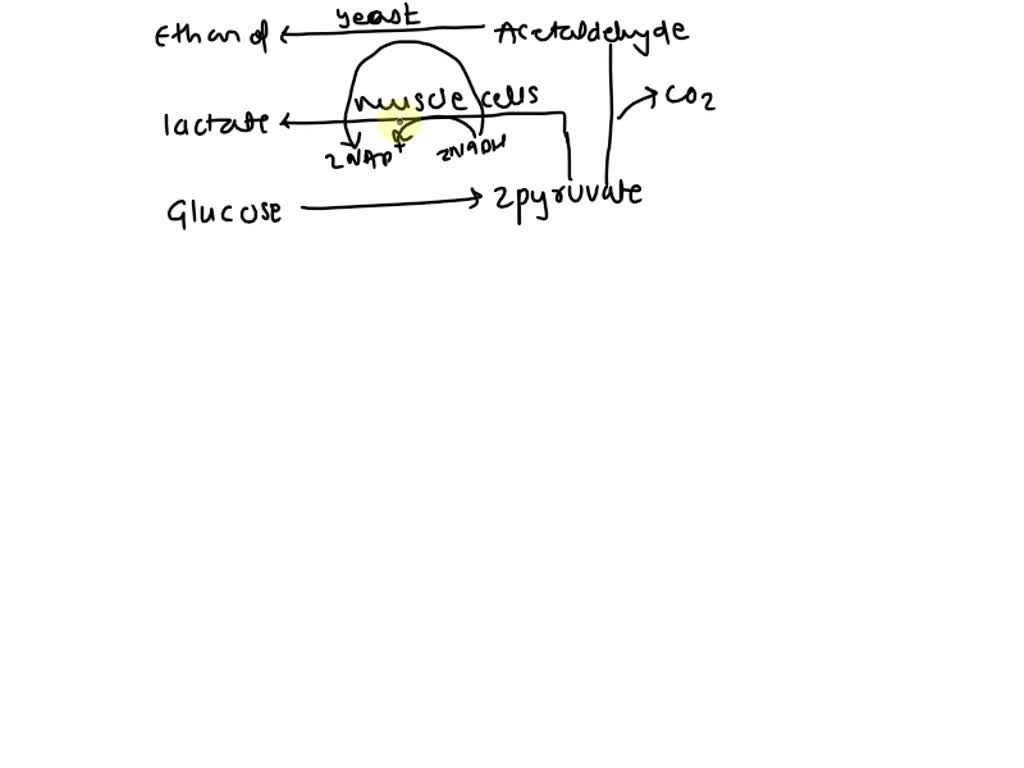 yeast
Ethanol Acetaldehyde
muscle cells CO2
lactate
2NAD+ 2NADH
Glucose 2pyruvate